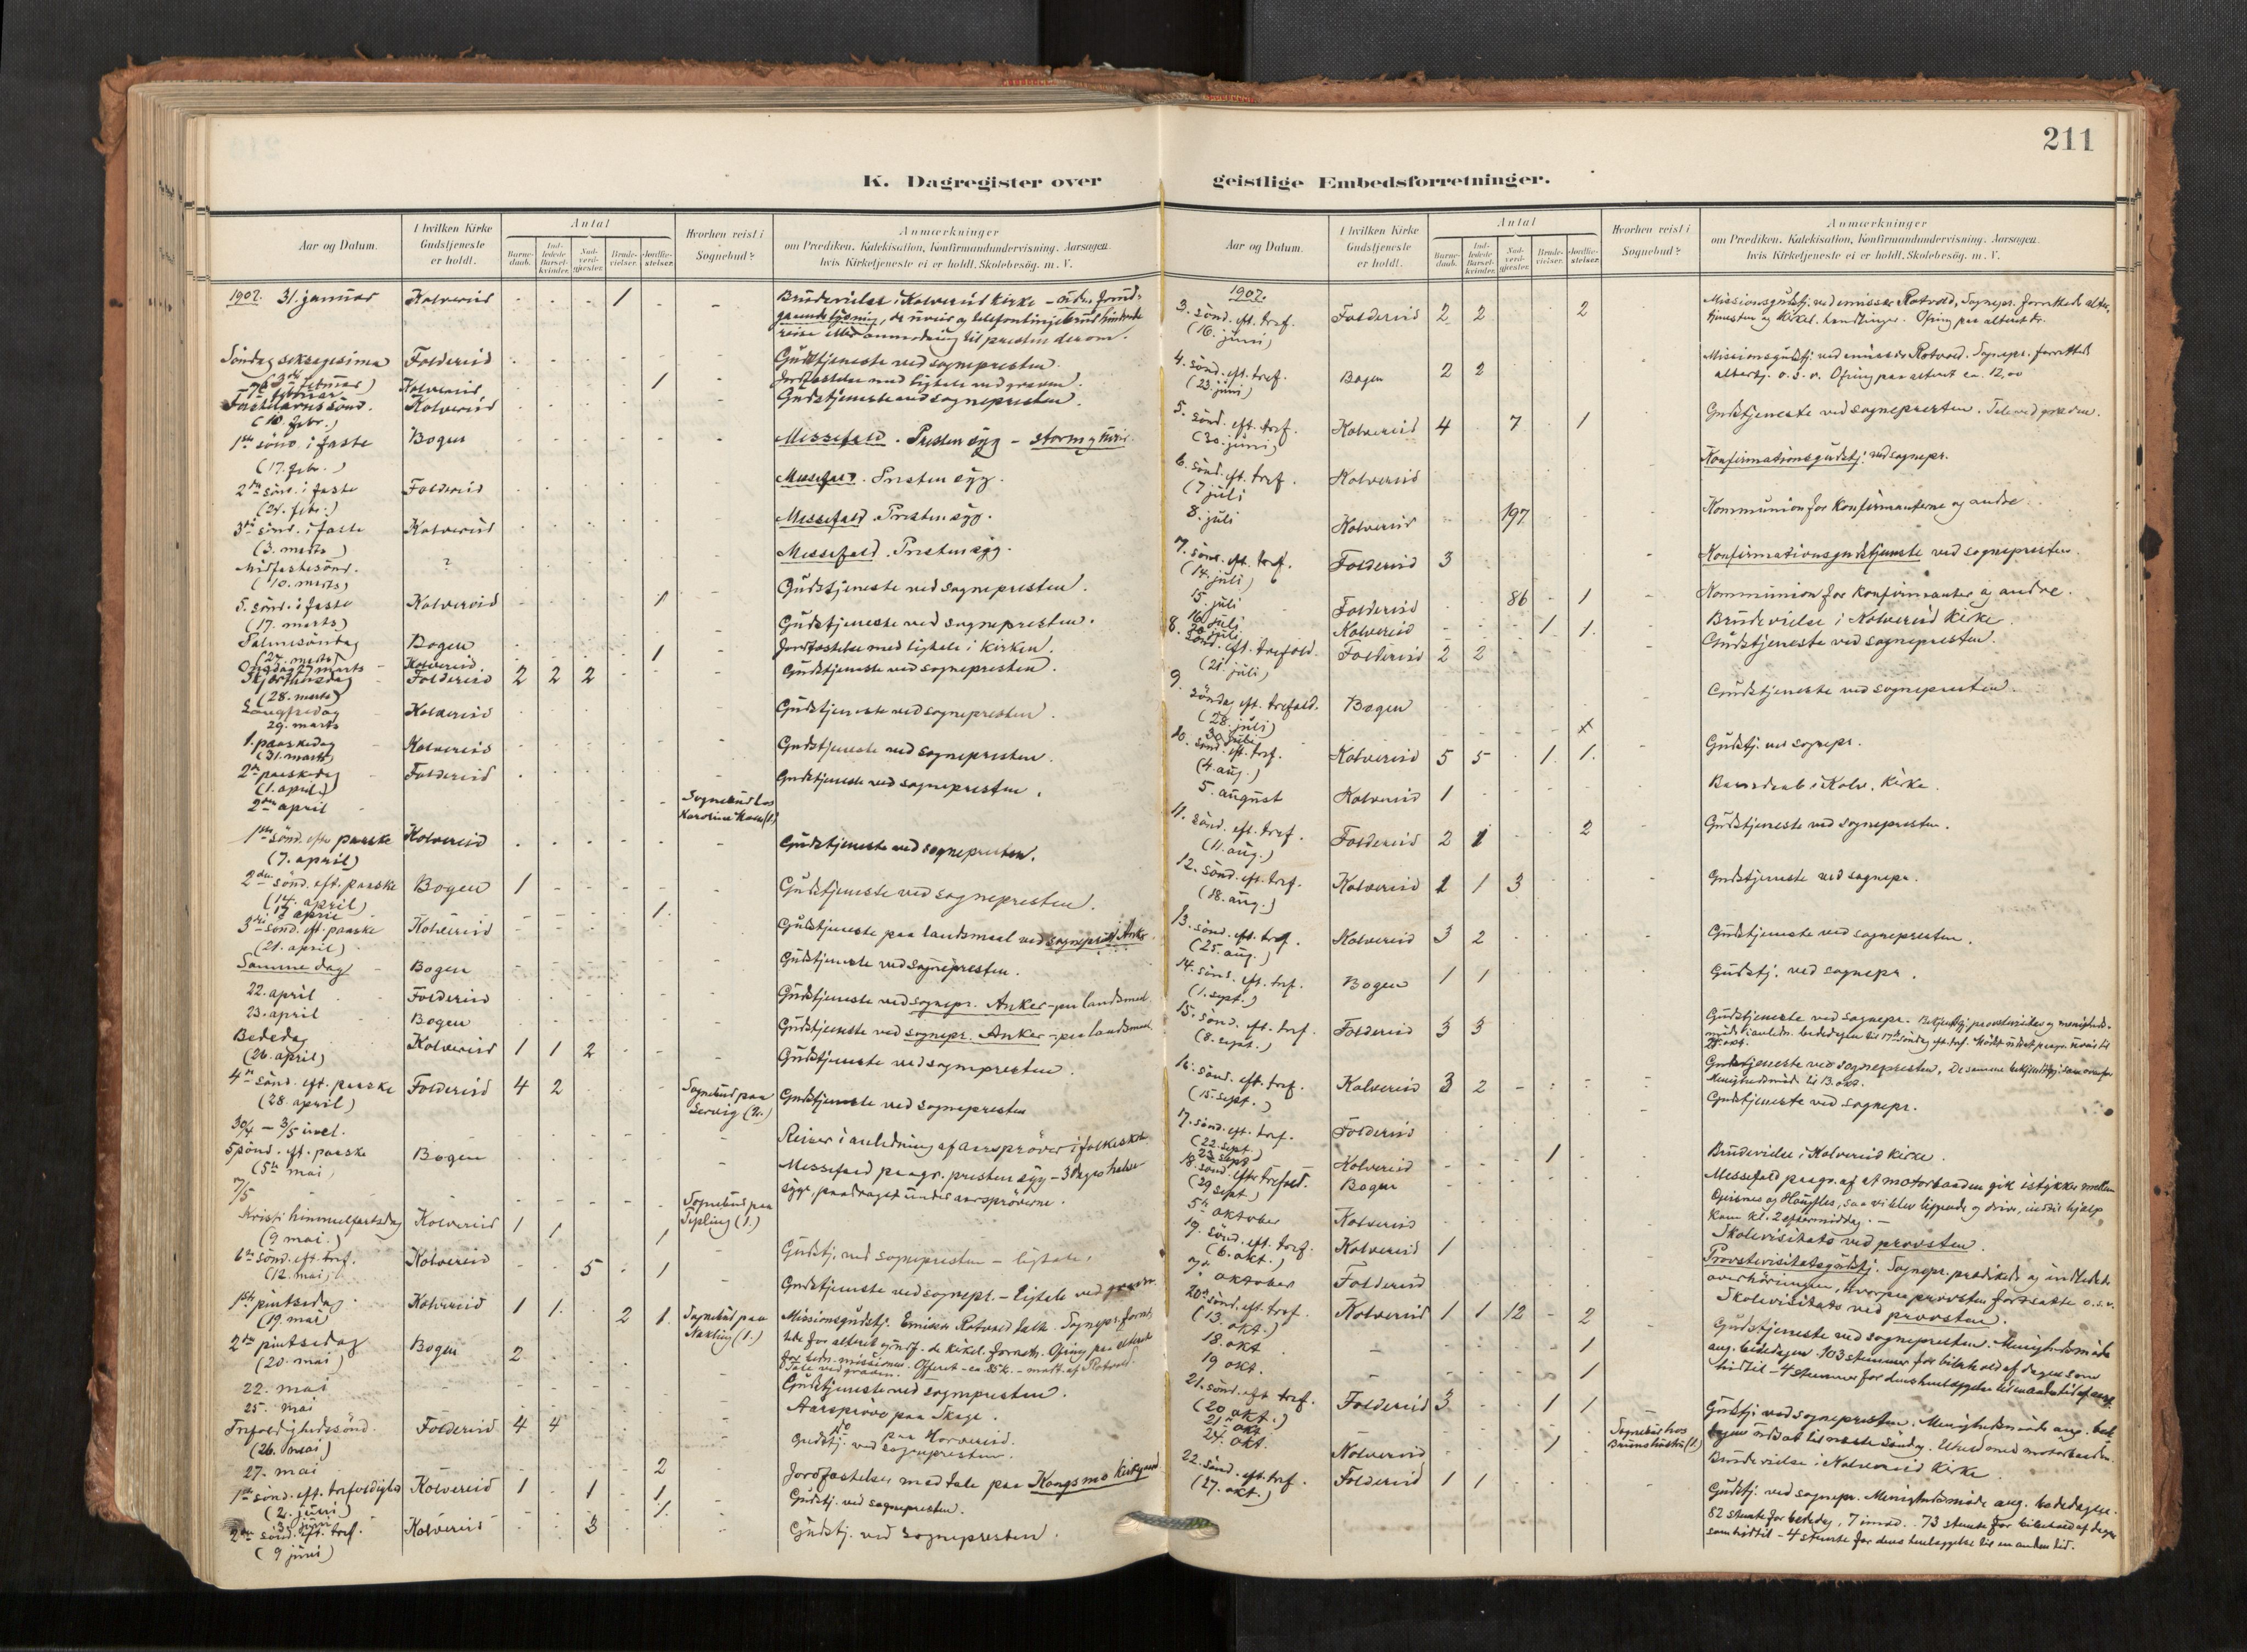 211
K. Dagregister over geistlige Embedsforretninger.
Aar og Datum.
I hvilken Kirke Gudstjeneste er holdt.
Antal
Barnedaab.
Indledede Barselkvinder.
Nadverdgjester.
Brudevielser.
Jordfæstelser.
Hvorhen reist i Sognebud?
Anmærkninger
om Prædiken, Katekisation, Konfirmandundervisning. Aarsagen
hvis Kirketjeneste ei er holdt. Skolebesøg. m. V.
1907. 31. januar Kolvereid - - - 1 - - Brudevielse i Kolvereid Kirke - uden forud-
gaaende lysning, da uveir og telefonlinjebrud hindrede
reise eller anmodning til presten derom.
Søndag seksagesima Foldereid - - - - - - Gudstjeneste ved sognepresten.
(3 februar)
Kolvereid 1 Jordfæstelse med ligtale ved graven.
Fastelavnssønd. Kolvereid Gudstjeneste ved sognepresten.
(10. febr.)
1ste sønd. i faste Bogen Messefald. Presten syg - storm og uveir.
(17. febr.)
2den sønd. i faste Foldereid Messefald. Presten syg.
(24. febr.)
3die sønd. i faste Kolvereid Messefald. Presten syg.
(3. marts)
Midfastesønd. ? Messefald. Presten syg.
(10. marts)
5. sønd. i faste Kolvereid 1 Gudstjeneste ved sognepresten.
(17. marts)
Palmesøndag Bogen Gudstjeneste ved sognepresten.
(24. marts)
Onsdag 27 marts Kolvereid 1 Jordfæstelse med ligtale i Kirken.
Skjærthorsdag Foldereid 2 2 2 Gudstjeneste ved sognepresten.
(28. marts)
Langfredag Kolvereid Gudstjeneste ved sognepresten.
29. marts
1. paaskedag Kolvereid Gudstjeneste ved sognepresten.
(31. marts)
2den paaskedag Foldereid Gudstjeneste ved sognepresten.
(1. april)
2den april Sognebud hos
Karoline (1)
1ste sønd. efter paaske Kolvereid Gudstjeneste ved sognepresten.
(7. april)
2den sønd. eft. paaske Bogen 1 Gudstjeneste ved sognepresten.
(14. april)
17 april 1.
3die sønd. eft. paaske Kolvereid Gudstjeneste paa landsmaal ved sogneprest Anker
(21. april)
Samme dag Bogen Gudstjeneste ved sognepresten.
22. april Foldereid Gudstjeneste ved sognepr. Anker - paa landsmaal
23. april Bogen Gudstjeneste ved sognepr. Anker - paa landsmaal
Bededag Kolvereid 1 1 2 Gudstjeneste ved sognepresten.
(26. april)
4de sønd. eft. paaske Foldereid 4 2 Sognebud paa Gudstjeneste ved sognepresten
(28. april) Servig (2.)
30/4 - 3/5 incl. Reiser i anledning af aarsprøver i folkeskolen
5 sønd. eft. paaske Bogen Messefald paagr. presten syg - 3 dages halse-
(5te mai) syge, paadraget under aarsprøverne.
7/5 Sognebud paa
(1.)
Kristi himmelfartsdag Kolvereid 1 1 1 Gudstj. ved sognepresten - ligtale.
(9. mai.)
6te sønd. eft. Kolvereid 5 1 Gudstjeneste ved sognepr. - ligtale ved graven.
(12. mai)
1ste pintsedag Kolvereid 1 1. 2 1. Sognebud paa Missionsgudstj. Emissær Rotvold talte. Sognepr. forret-
(19. mai) (1.) tede for alteret og udf. de kirkel. forretn. Ofring paa alteret
for missionen. Offeret ca. 35 k. - modt. af Rotvold.
Tale ved graven.
2den pintsedag Bogen 2 Gudstjeneste ved sognepresten.
(20. mai)
22. mai Aarsprøve paa Skage.
25. mai do paa Horvereid.
Trefoldighedssønd. Foldereid 4 4 Gudstj. ved sognepresten.
(26. mai)
27. mai 2 Jordfæstelser med tale paa Kongsmo Kirkegaard
1ste sønd. eft. trefoldighed Kolvereid 1 1 1 Gudstj. ved sognepresten.
(2. juni)
3 juni 1.
2den sønd. eft. tref. Kolvereid 3 Gudstj. ved sognepresten.
(9 juni)
Aar og Datum.
I hvilken Kirke Gudstjeneste er holdt.
Antal
Barnedaab.
Indledede Barselkvinder.
Nadverdgjester.
Brudevielser.
Jordfæstelser.
Hvorhen reist i Sognebud?
Anmærkninger
om Prædiken, Katekisation, Konfirmandundervisning. Aarsagen
hvis Kirketjeneste ei er holdt. Skolebesøg. m. V.
1907.
3. sønd. eft. tref. Foldereid 2 2 2 Missionsgudstj. ved emissær Rotvold, Sognepr. forrettede alter-
(16. juni) tjenesten og kirkel. handlinger. Ofring paa alteret
4. sønd. eft. tref. Bogen 2 2 Missionsgudstj. ved emissær Rotvold. Sognepr. forrettede
(23. juni) altertj. o. s. v. Ofring paa alteret ca. 12,00
5. sønd. eft. tref. Kolvereid 4 7 1 Gudstjeneste ved sognepresten. Tale ved graven.
(30. juni)
6. sønd. eft. tref. Kolvereid Konfirmationsgudstj. ved sognepr.
(7 juli
8. juli Kolvereid 197 Kommunion for konfirmanterne og andre
7. sønd. eft. tref. Foldereid 3 Konfirmationsgudstjeneste ved sognepresten.
(14. juli)
15. juli Foldereid 86 1 Kommunion for konfirmanter og andre.
16. juli Kolvereid 1 1. Brudevielse i Kolvereid Kirke.
20 juli
8. sønd. eft. trefold. Foldereid 2 2 Gudstjeneste ved sognepresten.
(21. juli)
9. søndag eft. trefold. Bogen Gudstjeneste ved sognepresten.
(28. juli)
30 juli x
10. sønd. eft. tref. Kolvereid 5 5 1. 1. Gudstj. ved sognepr.
(4. aug.)
5. august Kolvereid 1 Barnedaab i Kolv. Kirke.
11. sønd. eft. tref. Foldereid 2 1 2 Gudstjeneste ved sognepresten.
(11. aug.)
12. sønd. eft. tref. Kolvereid 1 1 3 Gudstjeneste ved sognepr.
(18. aug.)
13. sønd. eft. tref. Kolvereid 3 2 Gudstjeneste ved sognepresten.
(25. aug.)
14. sønd. eft. tref. Bogen 1 1 Gudstj. ved sognepr.
(1. sept.)
15. sønd. eft. tref. Foldereid 3 3 Gudstjeneste ved sognepr. Bekjendtgj. provstevisitats og menigheds-
(8. sept.) møde i anledn. bededagen til 17de søndag eft. tref.
16. sønd. eft. tref. Kolvereid 3 2 Gudstjeneste ved sognepresten. De samme bekjendtgj. som ovenfor
(15. sept.) Menighedsmøde til 13. okt.
17. sønd. eft. tref. Foldereid Gudstjeneste ved sognepr.
(22. sept.)
23 sept Kolvereid 1 Brudevielse i Kolvereid Kirke.
18. sønd. efter trefold. Bogen Messefald paagr. af at motorbaaden gik istykker mellem
(29 sept.) og Haugfles, saa vi blev liggende og drive, indtil hjælp
kom kl. 2 eftermiddag. -
5te oktober Kolvereid Skolevisitats ved provsten.
19. sønd. eft. tref. Kolvereid 1 Provstevisitatsgudstj. Sognepr. prædikede og indledede
(6. okt.) overhøringen, hvorpaa provsten fortsatte o.s.v.
oktober Foldereid Skolevisitats ved provsten.
20de sønd. eft. tref. Kolvereid 1 1 12 2 Gudstjeneste ved sognepresten. Menighedsmøde
(13. okt.) ang. bededagen. 103 stemmer for bibehold af dagen som
18. okt 1 hidtil - 4 stemmer for dens henlæggelse til en anden tid af aaret.
19 okt. 1
21. sønd. eft. tref. Foldereid 3 1 1 Gudstj. ved sognepresten. Menighedsmøde ang. bede-
(20 okt.) dagen udsat til næste søndag. Uheld med motorbaaden.
21 okt. Sognebud hos
24. okt. Kolvereid 1 (1.) Brudevielse i Kolvereid Kirke.
22. sønd. eft. tref. Foldereid 1 1 Gudstj. ved sognepr. Menighedsmøde ang. bededagen.
(27. okt.) 82 stemte for bededag, 7 imod. 73 stemte for bibehold af dagen
som hidtil - 4 stemte for dens henlæggelse til en anden tid.